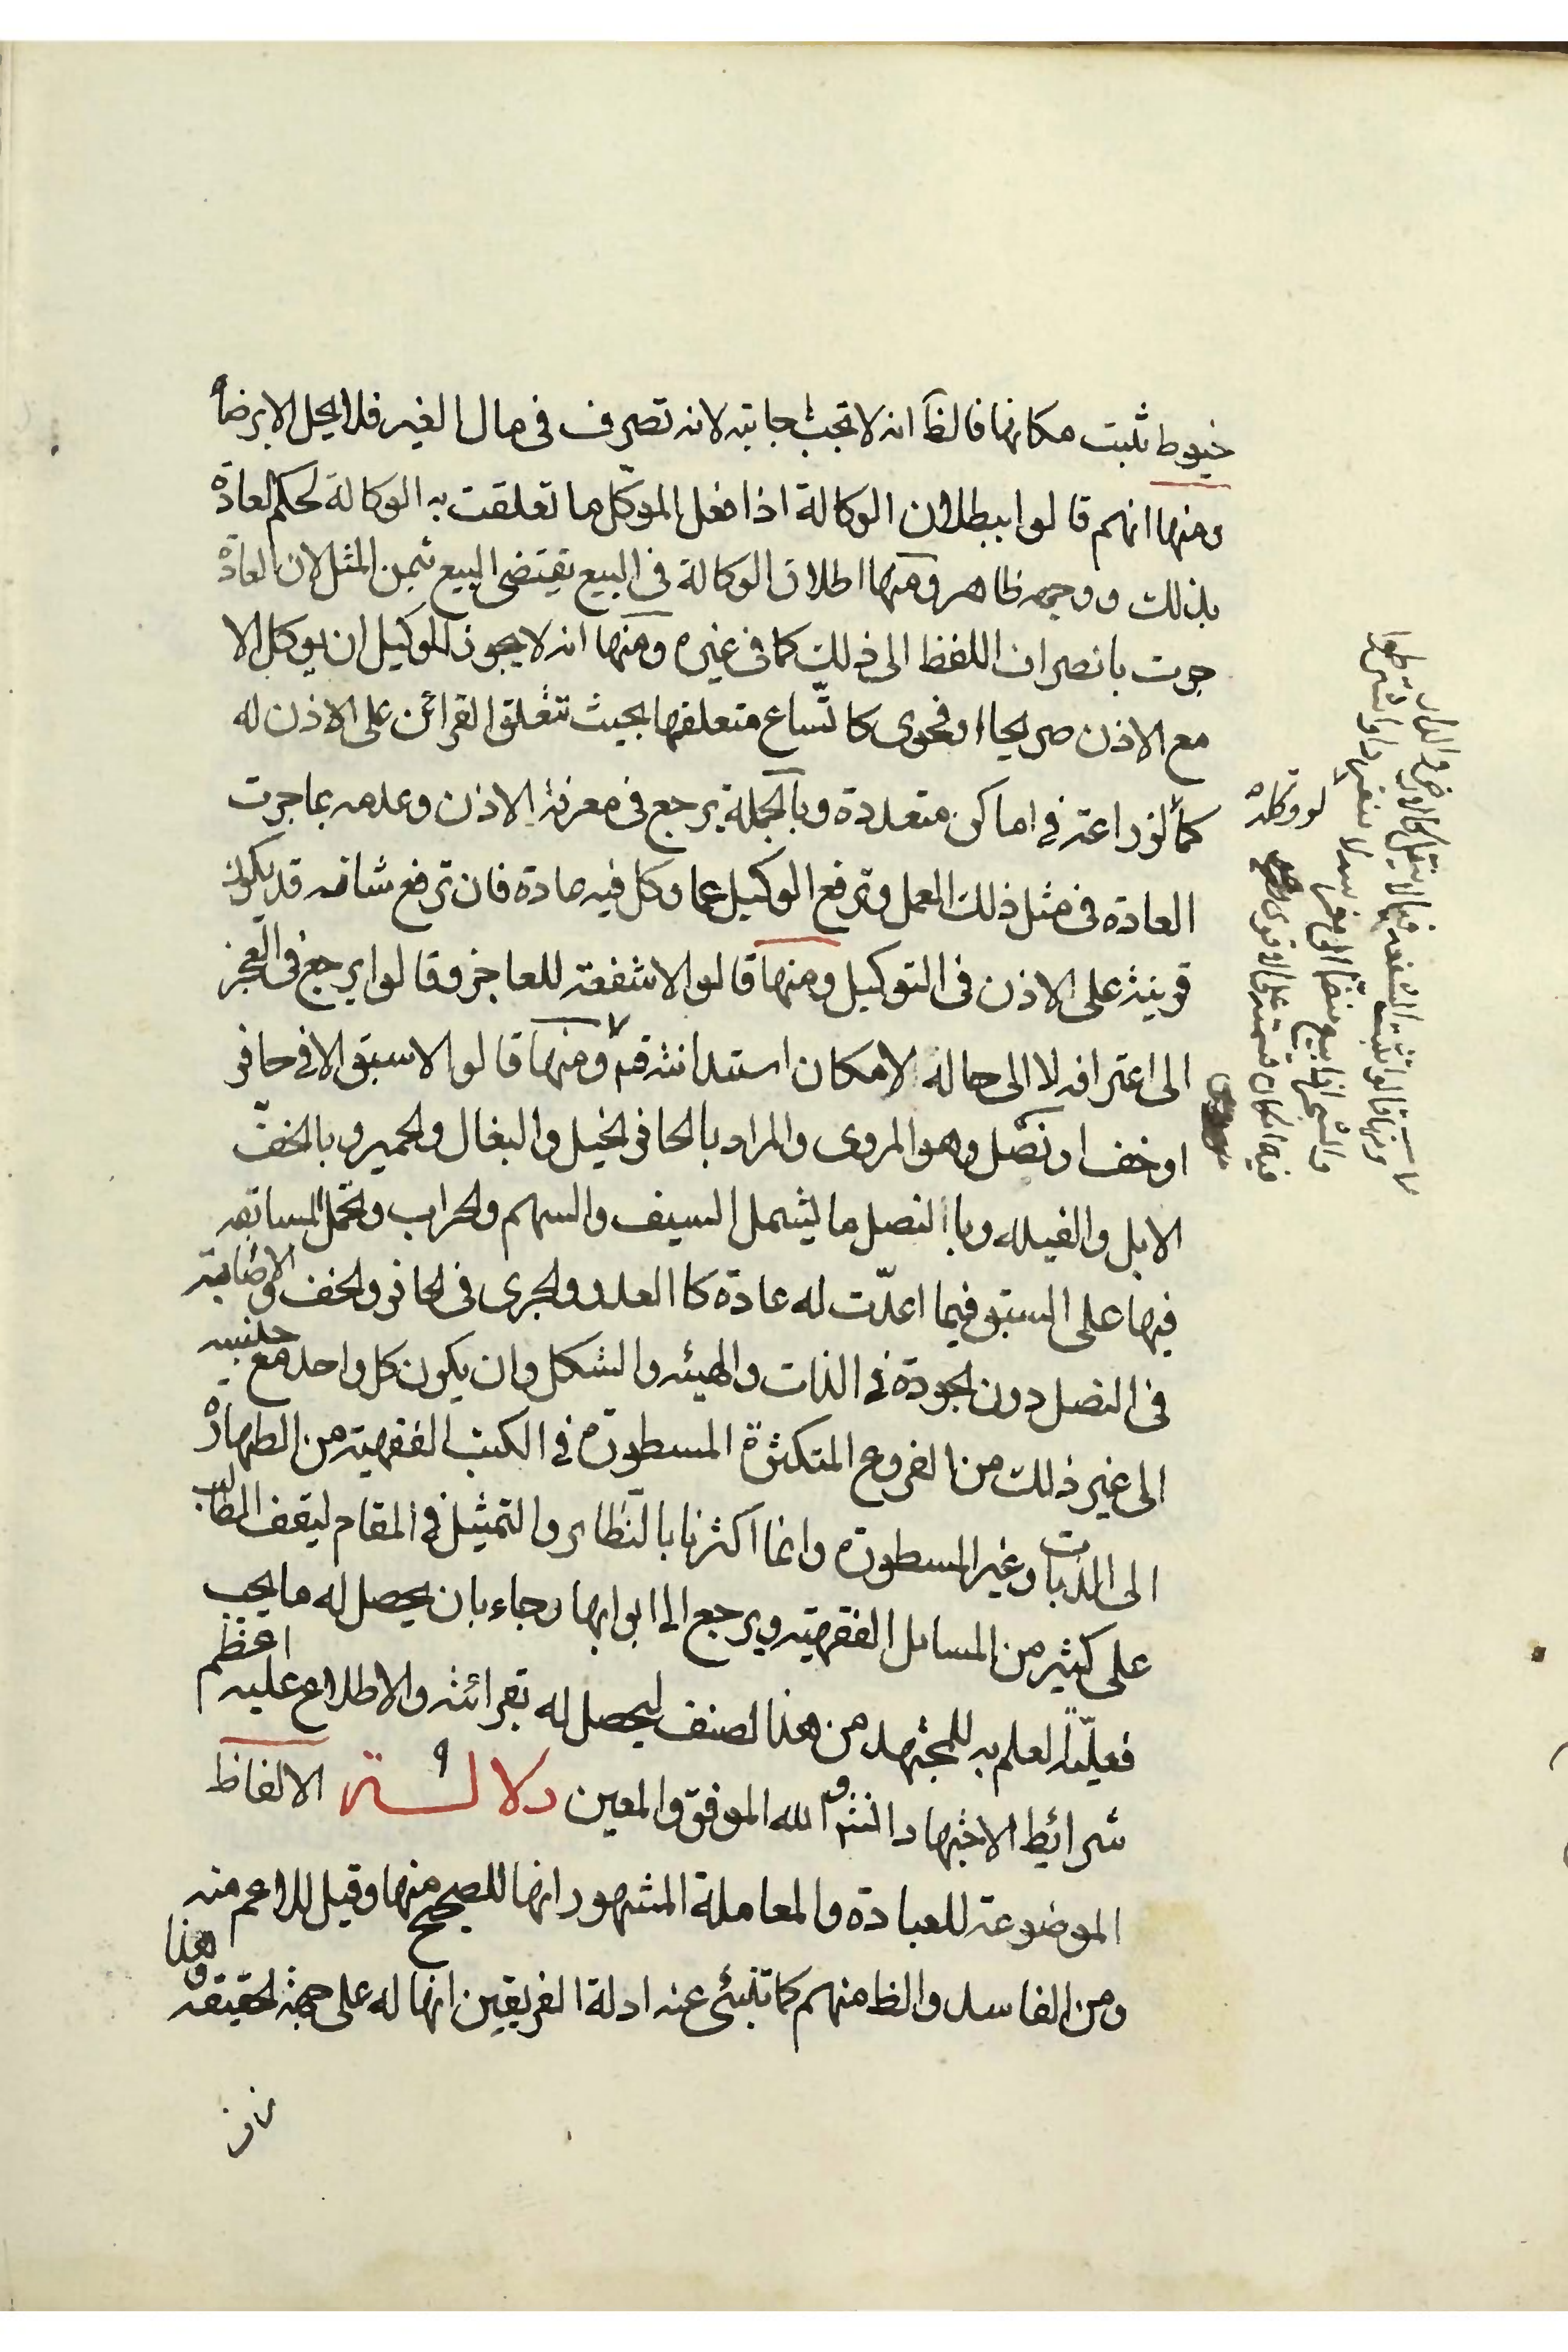 خيوط تثبت مكانها فالظ انه لا تجب اجابته لانه تصرف فى مال الغير فلا يحل الا برضاه
ومنها انهم قالوا ببطلان الوكالة اذا فعل الموكّل ما تعلقت به الوكالة لحكم العادة
بذلك ووجهه ظاهر ومنها اطلاق الوكالة فى البيع يقتضى البيع بثمن المثل لان العادة
جرت بانصراف اللفظ الى ذلك كما فى غيره ومنها انه لا يجوز للوكيل ان يوكل الا
مع الاذن صريحا او فحوى كاتّساع متعلقها بحيث تتعلق القرائن على الاذن له
كالزراعة فى اماكن متعددة وبالجملة يرجع فى معرفة الاذن وعدمه بما جرت
العادة فى مثل ذلك العمل وترفع الوكيل عما وكل فيه عادة فان ترفع شانه قد يكون
قرينة على الاذن فى التوكيل ومنها قالوا لا شفعة للعاجز وقالوا يرجع فى العجز
الى اعترافه لا الى حاله لامكان استدانته ومنها قالوا لا سبق الا فى حافر
او خف او نصل وهو المروى والمراد بالحافر الخيل والبغال والحمير وبالخفّ
الابل والفيله وبالنصل ما يشمل السيف والسهم والحراب وتحمل المسابقه
فيها على السبق فيما اعدّت له عادة كالعدو والجرى فى الحافر والخف والاصابة
فى النصل دون الجودة فى الذات والهيئه والشكل وان يكون كل واحد مع جنسه
الى غير ذلك من الفروع المتكثرة المسطورة فى الكتب الفقهية من الطهارة
الى الديات وغير المسطورة وانما اكثرنا بالنظاير والتمثيل فى المقام ليقف الطالب
على كثير من المسايل الفقهية ويرجع الى ابوابها رجاء بان يحصل له ما يجب
فعليّة العلم به للمجتهد من هذا الصنف ليحصل له بقرائنه والاطلاع عليه اعظم
شرائط الاجتهاد والله الموفق والمعين دلالة الالفاظ
الموضوعة للعبادة والمعاملة المشهور انها للصحيح منها وقيل للاعم منه
ومن الفاسد والظ منهم كما تنبئ عنه ادلة الفريقين انها له على جهة الحقيقة وهذا
ومنها قالوا تثبت الشفعه فيما لا ينقل كالارض والدار